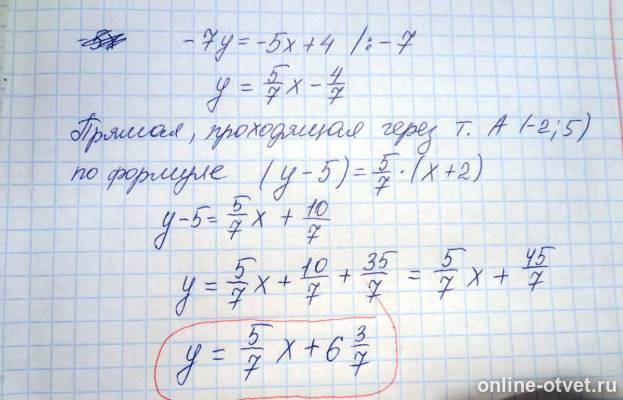 -7y = -5x + 4 /: -7
y = 5/7 x - 4/7
Прямая, проходящая через т. A (-2; 5)
по формуле (y - 5) = 5/7 · (x + 2)
y - 5 = 5/7 x + 10/7
y = 5/7 x + 10/7 + 35/7 = 5/7 x + 45/7
y = 5/7 x + 6 3/7
online-otvet.ru